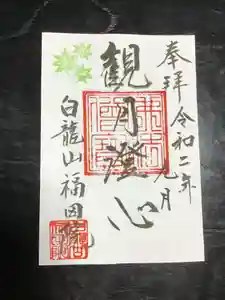 奉拝 令和二年
九月
観月澄心
白龍山福田院